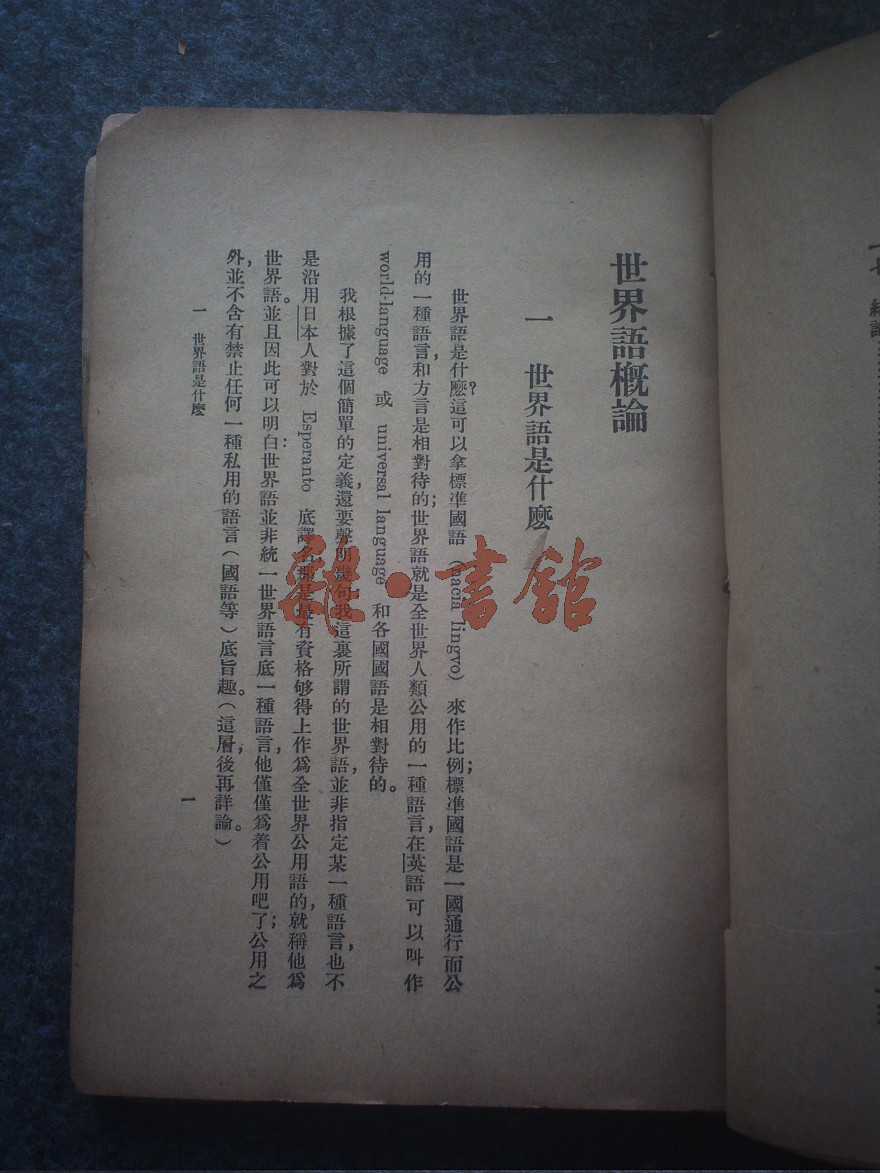 世界語概論
一　世界語是什麽
世界語是什麽？這可以拿標準國語（nacia lingvo）來作比例；標準國語是一國通行而公
用的一種語言，和方言是相對待的；世界語就是全世界人類公用的一種語言，在英語可以叫作
world-language 或 universal language 和各國國語是相對待的。
我根據了這個簡單的定義，還要聲明幾句：我這裏所謂的世界語，並非指定某一種語言，也不
是沿用日本人對於 Esperanto 底譯名；那是最有資格够得上作爲全世界公用語的，就稱他爲
世界語。並且因此可以明白：世界語並非統一世界語言底一種語言，他僅僅爲着公用吧了；公用之
外，並不含有禁止任何一種私用的語言（國語等）底旨趣。（這層，後再詳論。）
一　世界語是什麽
一
雜·書館